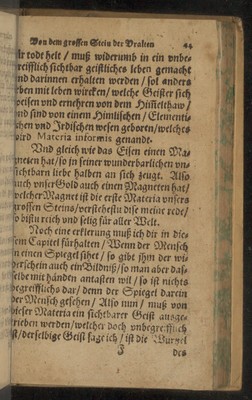 Von dem grossen Stein der Uralten 44
für todt helt / muß widerumb in ein unbe-
greifflich sichtbar geistliches leben gemacht
und darinnen erhalten werden / sol anders
leben mit leben wircken / welche Geister sich
speisen und ernehren von dem Him̃elthaw /
und sind von einem Himlischen / Elementi-
schen und Irdischen wesen geboren / welches
wird Materia informis genandt.
Und gleich wie das Eisen einen Ma-
gneten hat / so in seiner wunderbarlichen un-
sichtbarn liebe halben an sich zeugt. Also
auch unser Gold auch einen Magneten hat /
welcher Magnet ist die erste Materia unsers
grossen Steins / verstehestu dise meine rede /
so bistu reich und selig für aller Welt.
Noch eine erklerung muß ich dir in die-
sem Capitel fürhalten / Wenn der Mensch
in einen Spiegel sihet / so gibt ihm der wi-
derschein auch ein Bildnuß / so man aber das-
selbe mit händen antasten wil / so ist nichts
begreifflichs dar / denn der Spiegel darein
der Mensch gesehen / Also nun / muß von
dieser Materia ein sichtbarer Geist ausge-
trieben werden / welcher doch unbegreifflich
ist / derselbige Geist sage ich / ist die Wurtzel
J des